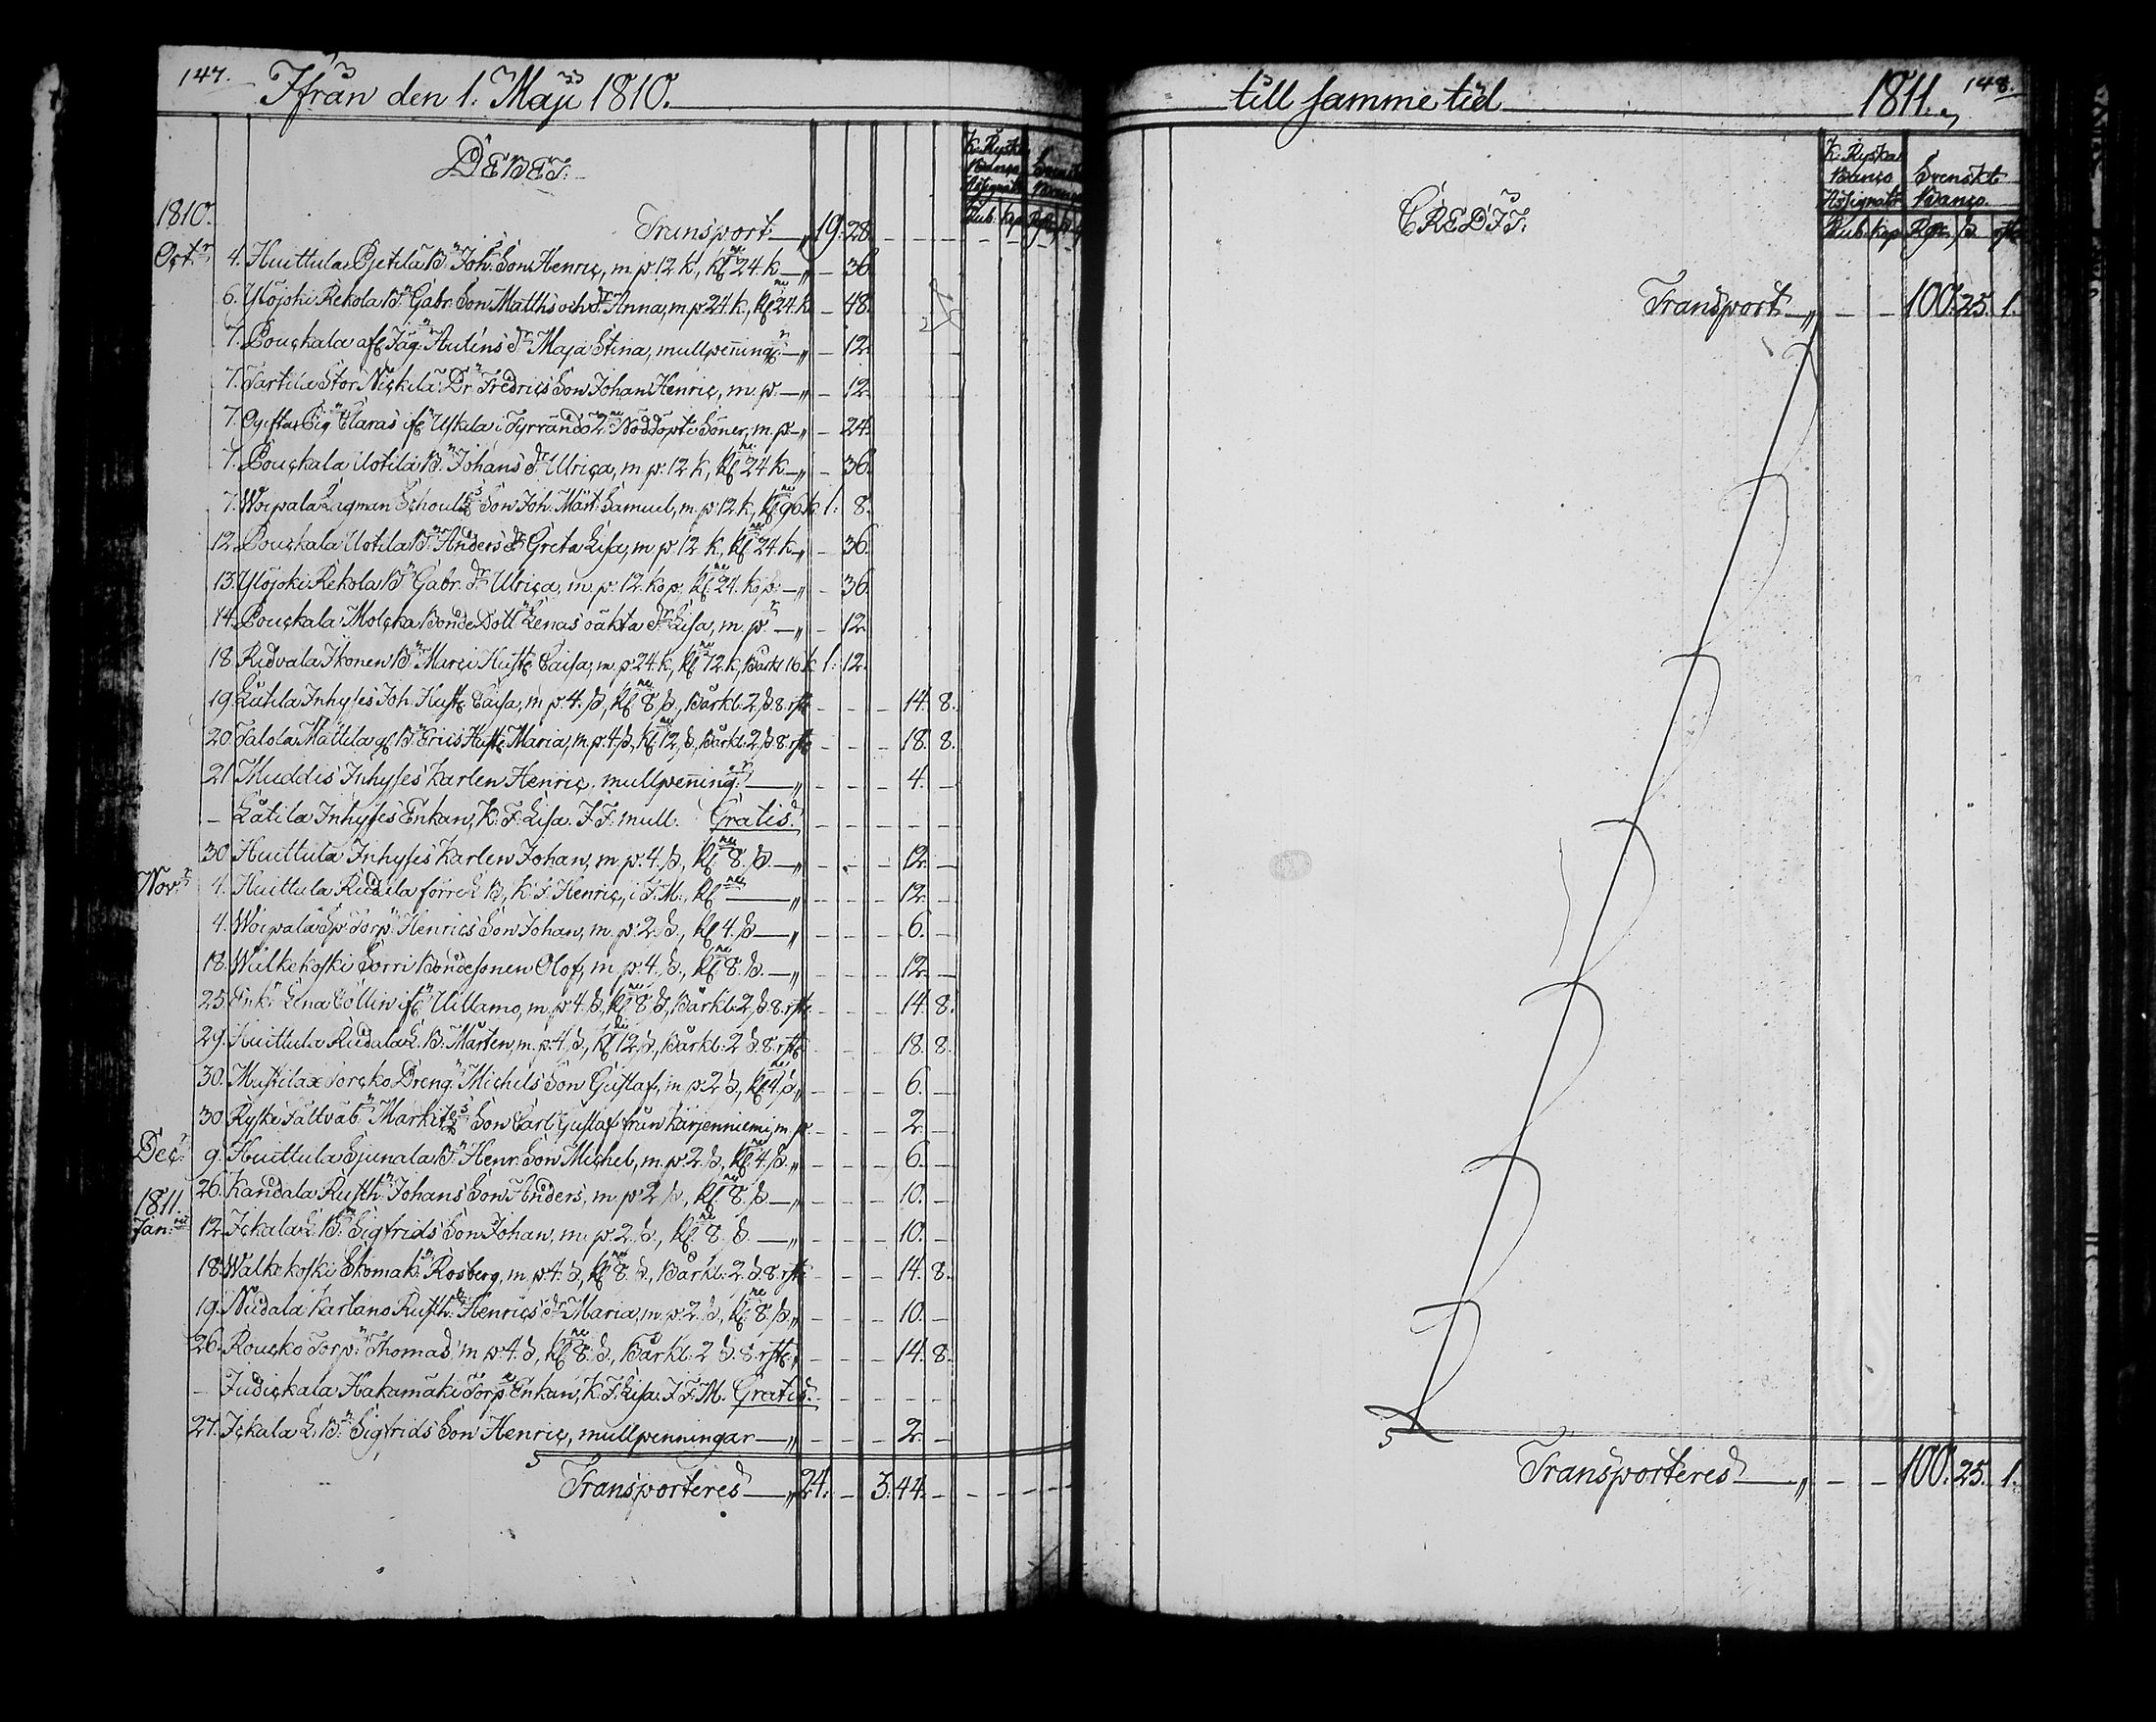 147. Ifrån den 1. Maji 1810.
DEBET.
K. Ryska Banco Assignat. Svenskt Banco
Rub. Kop. Rdr
1810. Transport 19. 28.
Oct:r 4. Huittula Pietilä B:n Joh: Son Henric, m. p. 12 k, kl:ne 24. k — 36.
6. Ylöjoki Rekola B:n Gabr. Son Matths och dr Anna, m. p. 24. k., kl:ne 24. k — 48.
7. Pouckala afl. Jäg: Hulins dr Maja Stina, mullpening:r — 12.
7. Tarttila Stor Nickilä Dr:n Fredrics Son Johan Henric, m. p. — 12.
7. Ogifta Pig:n Claras ifr: Uskila i Tyrvändö 2:ne Nöddöpte Söner, m. p. — 24.
7. Pouckala Uotila B:n Johans dr Ulrica, m. p. 12 k, kl:ne 24 k — 36.
7. Woipala Lagman Schoultz's Son Joh. Märt. Samuel, m. p. 12 k, kl:ne 96 k 1. 8.
12. Pouckala Uotila B:n Anders dr Greta Lisa, m. p. 12 k., kl:ne 24. k — 36.
13. Ylöjoki Rekola B:n Gabr. dr Ulrica, m. p. 12. kop., kl:ne 24. kop. — 36.
14. Pouckala Molcka Bonde Dott:n Lenas oäkta dr Lisa, m. p. — 12.
18. Ridvala Ikonen B:n Marci Hustr. Caisa, m. p. 24. k, kl:ne 72. k, Bårkl 16. k 1. 12.
19. Lutila Inhyses Joh. Hustr. Caisa, m. p. 4. ß, kl:ne 8. ß, Bårkl. 2 ß 8. rst — 14. 8.
20. Talola Mattila gl. B:n Erics Hustr. Maria, m. p. 4. ß, kl:ne 12. ß, Bårkl. 2. ß 8. rst — 18. 8.
21. Muddis Inhyses Karlen Henric, mullpening:r — 4. —
— Låtila Inhyses Enkan, K. F. Lisa. I F. mull. Gratis.
30. Huittula Inhyses Karlen Johan, m. p. 4. ß, kl:ne 8. ß. — 12. —
Nov:r 4. Huittula Rudila förre L. B., K. F. Henric, i F. M., kl:ne — 12. —
4. Woipala Sp. Torp:n Henrics Son Johan, m. p. 2. ß., kl. 4. ß — 6. —
18. Wälkekoski Sorri Bondesonen Olof, m. p. 4. ß., kl:ne 8. ß. — 12. —
25. Enk:n Lena Collin ifr: Uillamo, m. p. 4. ß, kl:ne 8 ß, Bårkl. 2, ß 8. rst — 14. 8.
29. Huittula Rudala L. B. Mårten, m. p. 4. ß, kl:ne 12. ß, Bårkl. 2 ß. 8. rst — 18. 8.
30. Mustila Torcko Dreng:n Michels Son Gustaf, m. p. 2 ß, kl:ne 4. ß — 6. —
30. Ryske Fältväb:n Son Carl Gustaf från Kärjenniemi, m. p. — 2. —
Dec:r 9. Huittula Sjunala B:n Henr. Son Michel, m. p. 2. ß, kl:ne 4. ß. — 6. —
26. Kandala Rusth:n Johans Son Anders, m. p. 2 ß., kl:ne 8. ß — 10. —
1811.
Jan:rii 12. Ickala L. B:n Sigfrids Son Johan, m. p. 2. ß., kl:ne 8. ß. — 10. —
18. Walkekoski Skomak:n Rosberg, m. p. 4. ß, kl:ne 8. ß., Bårkl. 2. ß. 8. rst — 14. 8.
19. Nudala Kartano Rusth:n Henrics dr Maria, m. p. 2. ß, kl:ne 8. ß — 10. —
26. Roucko Torp:n Thomas, m. p. 4. ß, kl:ne 8. ß., Bårkl. 2 ß. 8. rst — 14. 8.
— Judickala Hakamäki Torp:e Enkan, K. F. Lisa. I F. M. Gratis.
27. Ickala L. B:n Sigfrids Son Henric, mullpenningar — 2. —
Transporteres 24. — 3. 44. —
till samme tid 1811. 148.
CREDIT.
K. Ryska Banco Assignat Svenskt Banco.
Rub. Kop. Rdr ß. rst
Transport — — 100. 25. 1.
Transporteres — — 100. 25. 1.